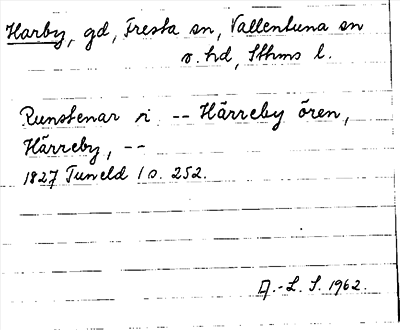 Harby, gd, Fresta sn, Vallentuna sn
o. hd, Sthms l.
Runstenar i -- Härreby ören,
Härreby, --
1827 Tuneld 1 s. 252.
A.-L. S. 1962.